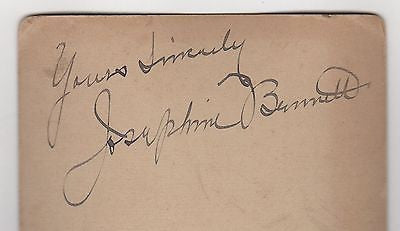 Yours Sincerely
Josephine Bennett